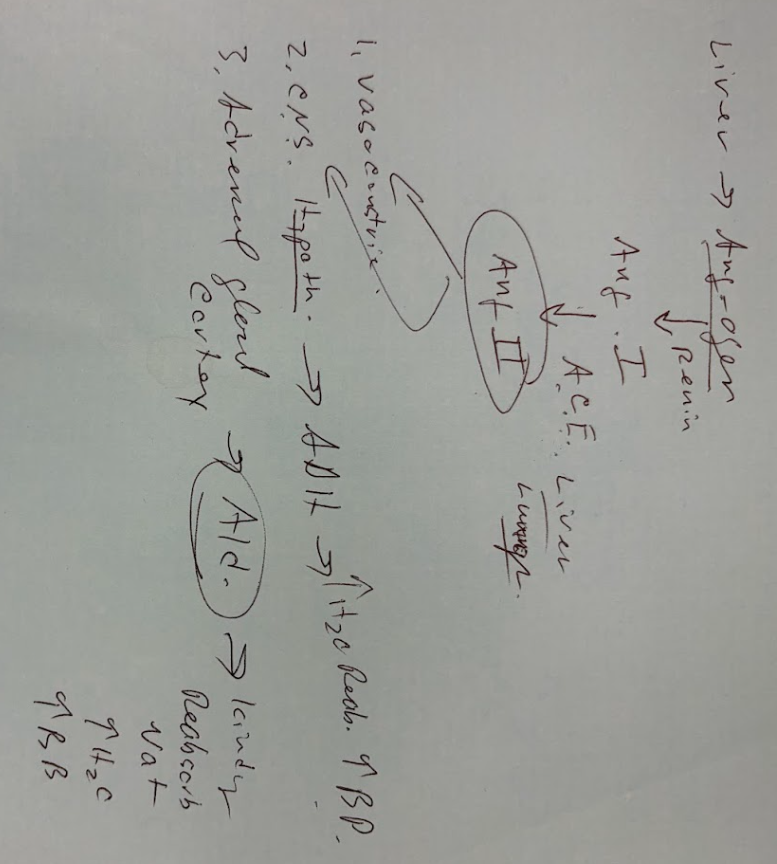 Liver → Ang-ogen
↓ Renin
Ang. I
↓ A.C.E. Liver
Ang II
1, vasoconstric.
2, CNS. Hypoth. → ADH → ↑H2O Reab. ↑ BP.
3, Adrenal gland → Ald. → kindy
Cortex
Reabsorb
Na+
↑ H2O
↑ BB